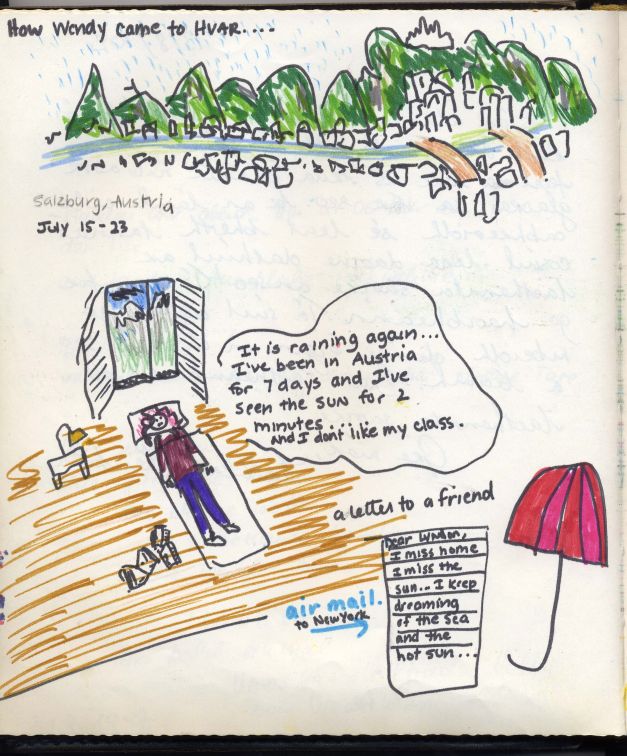 How Wendy came to HVAR....
Salzburg, Austria
July 15-23
It is raining again...
I've been in Austria
for 7 days and I've
seen the sun for 2
minutes...
and I dont like my class.
a letter to a friend
Dear
I miss home
I miss the
sun... I keep
dreaming
of the sea
and the
hot sun...
air mail.
to New York